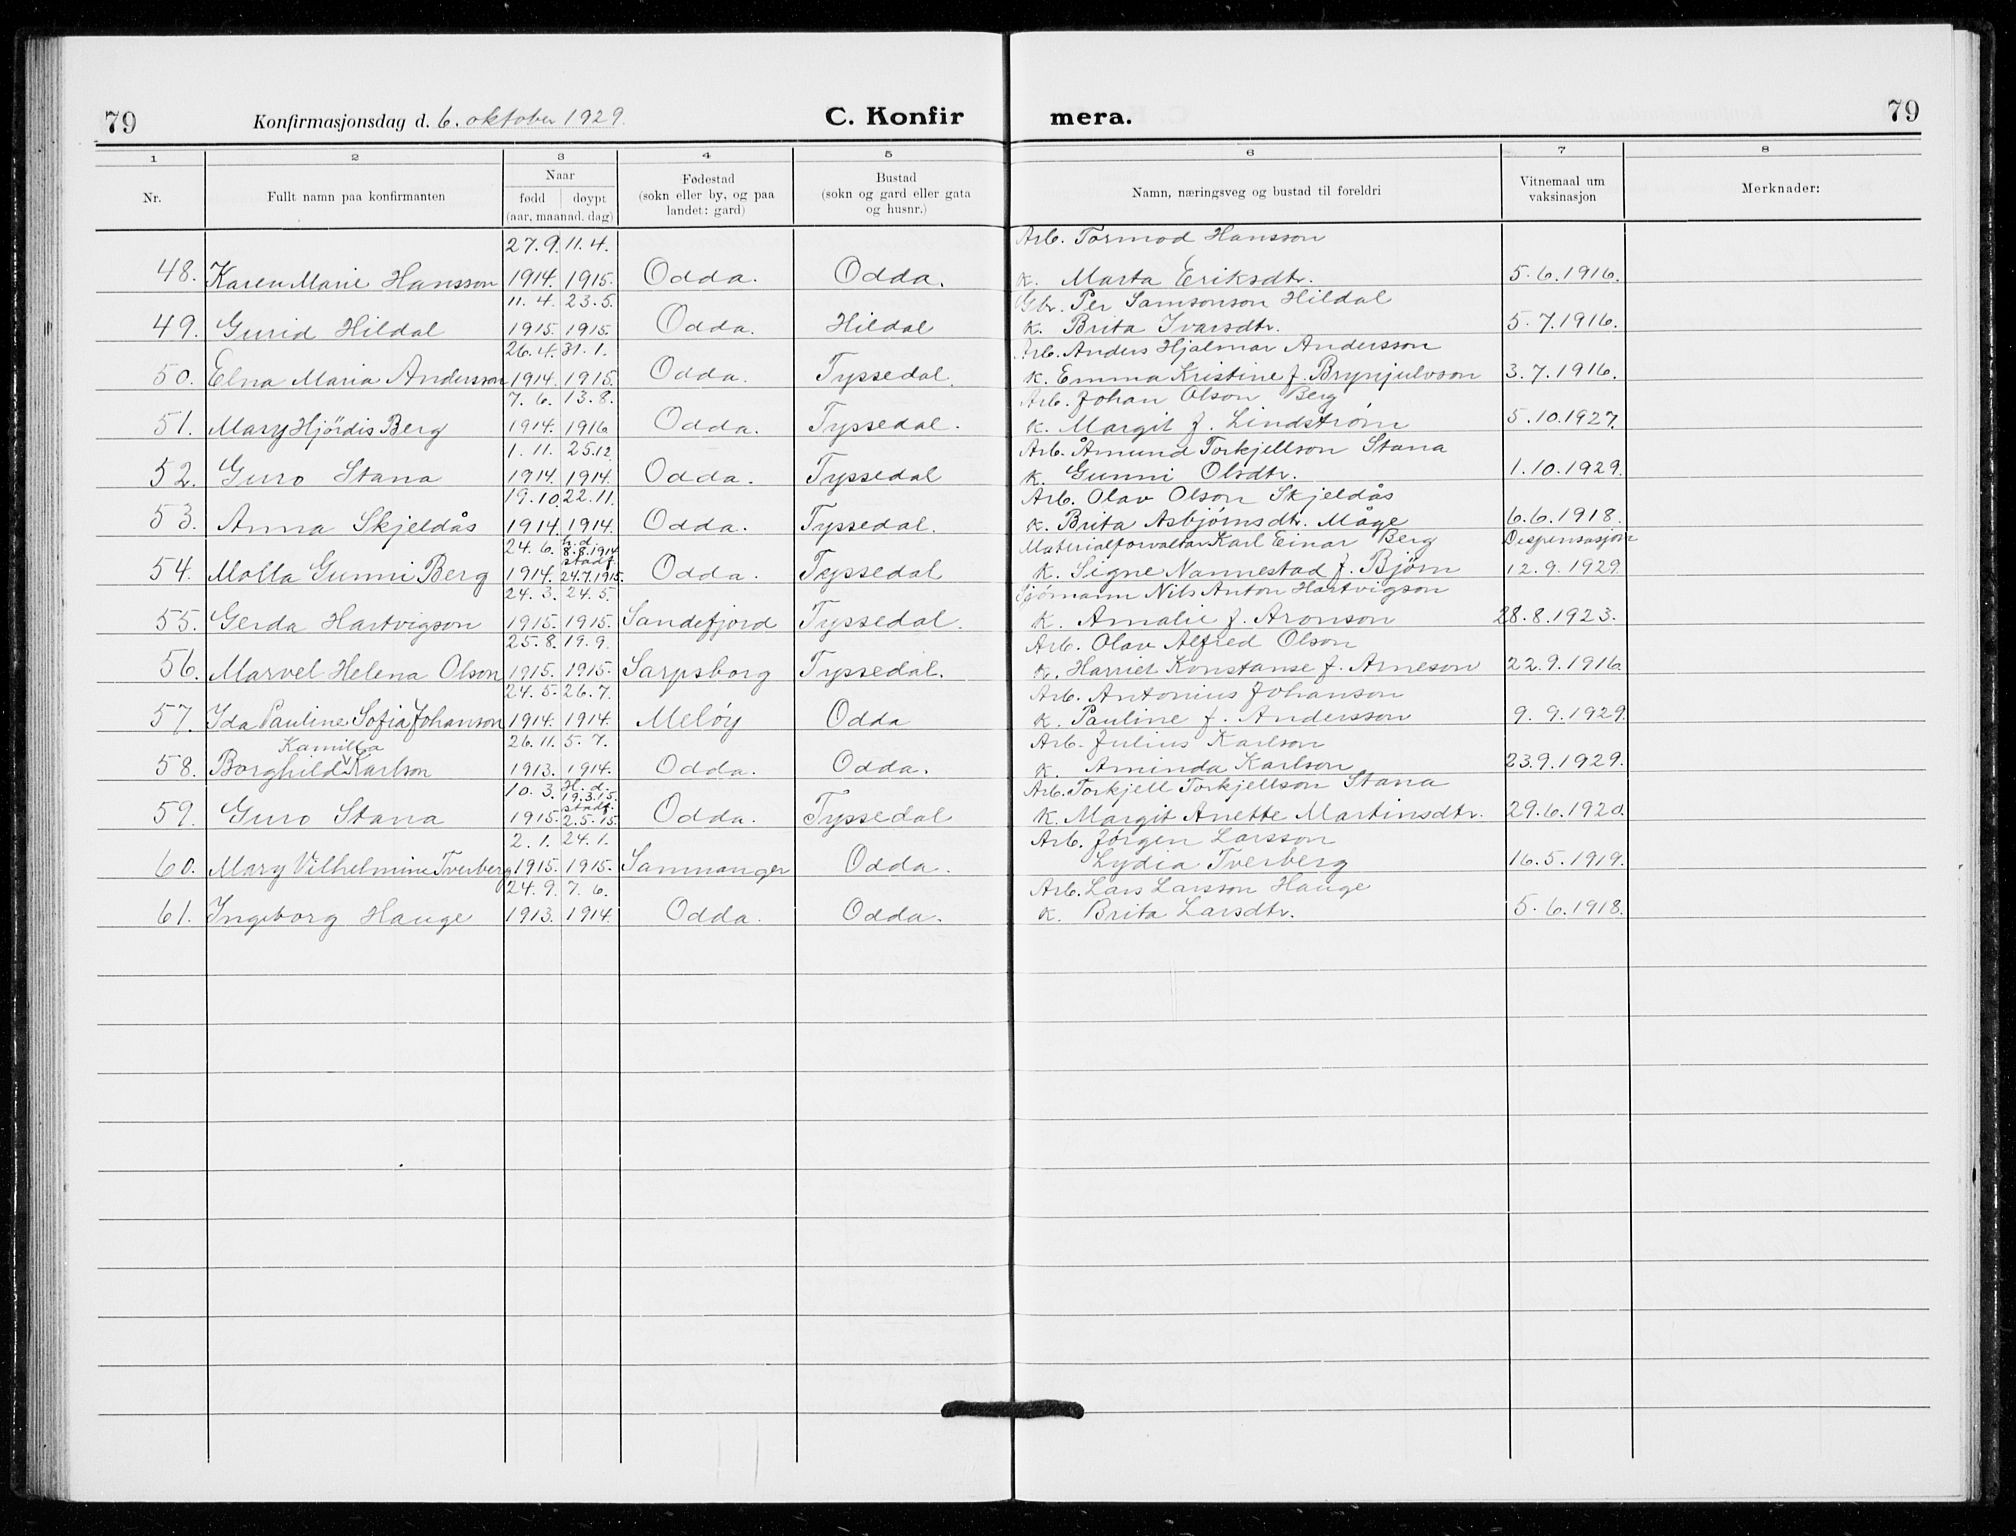 79 Konfirmasjonsdag d. 6. oktober 1929. C. Konfir mera. 79
1 2 3 4 5 6 7 8
Nr. Fullt namn paa konfirmanten Naar fødd døypt (aar, maanad, dag) Fødestad (sokn eller by, og paa landet: gard) Bustad (sokn og gard eller gata og husnr.) Namn, næringsveg og bustad til foreldri Vitnemaal um vaksinasjon Merknader:
27.9. 11.4. Arb. Tormod Hansson
48. Karen Marie Hansson 1914. 1915. Odda. Odda. K. Marta Eriksdtr. 5.6.1916.
11.4. 23.5. Gbr. Per Samsonson Hildal
49. Gurid Hildal 1915. 1915. Odda. Hildal K. Brita Ivarsdtr. 5.7.1916.
26.4. 31.1. Arb. Anders Hjalmar Andersson
50. Elna Maria Andersson 1914. 1915. Odda. Tyssedal. K. Emma Kristine f. Brynjulvson 3.7.1916.
7.6. 13.8. Arb. Johan Olson Berg
51. Mary Hjördis Berg 1914. 1916 Odda. Tyssedal. K. Margit f. Lindstrøm 5.10.1927.
1.11. 25.12. Arb. Åmund Torkjellson Stana
52. Guro Stana 1914. 1914. Odda. Tyssedal K. Gunni Olsdtr. 1.10.1929.
19.10. 22.11. Arb. Olav Olson Skjeldås
53. Anna Skjeldås 1914. 1914. Odda. Tyssedal. K. Brita Asbjørnsdtr. Måge 6.6.1918.
24.6. h.d. 8.8.1914 stadf. Materialforvaltar Karl Einar Berg Dispensasjon
54. Molla Gunni Berg 1914. 24.7.1915. Odda. Tyssedal K. Signe Nannestad f. Bjørn 12.9.1929.
24.3. 24.5. Sjømann Nils Anton Hartvigson
55. Gerda Hartvigson 1915. 1915. Sandefjord Tyssedal. K. Amalie f. Aronson 28.8.1923.
25.8. 19.9. Arb. Olav Alfred Olson
56. Marvel Helena Olson 1915. 1915. Sarpsborg Tyssedal. K. Harriet Konstanse f. Arneson 22.9.1916
24.5. 26.7. Arb. Antonius Johanson
57. Ida Pauline Sofia Johanson 1914. 1914. Meløy Odda K. Pauline f. Andersson 9.9.1929.
Kamilla 26.11. 5.7. Arb. Julius Karlson
58. Borghild Karlson 1913. 1914. Odda. Odda. K. Aminda Karlson 23.9.1929.
10.3. H.d. 19.3.15. stadf. Arb. Torkjell Torkjellson Stana
59. Guro Stana 1915. 2.5.15. Odda. Tyssedal K. Margit Anette Martinsdtr. 29.6.1920.
2.1. 24.1. Arb. Jørgen Larsson
60. Mary Vilhelmine Tverberg 1915. 1915. Samnanger Odda. Lydia Tverberg 16.5.1919.
24.9. 7.6. Arb. Lars Larsson Hauge
61. Ingeborg Hauge 1913. 1914. Odda. Odda. K. Brita Larsdtr. 5.6.1918.